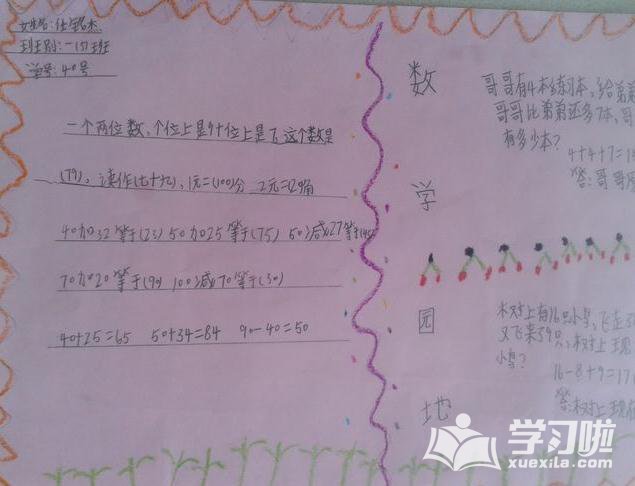 姓名:仕铭杰
班别:一(5)班
学号:40号
一个两位数、个位上是9十位上是7、这个数是
(79)、读作(七十九)、1元=(100)分 2元=(20)角
40加32等于(23) 50加25等于(75) 50减27等于
70加20等于(90) 100减70等于(30)
40+25=65 50+34=84 90-40=50
数
学
园
地
哥哥有4本练习本,给弟弟
哥哥比弟弟还多7本,哥
有多少本?
4+4+7=1
答:哥哥原
木对上有16只小鸟,飞走
又飞来了9只,木对上现
小鸟?
16-8+9=17
答:木对上现
学习啦
xuexila.com